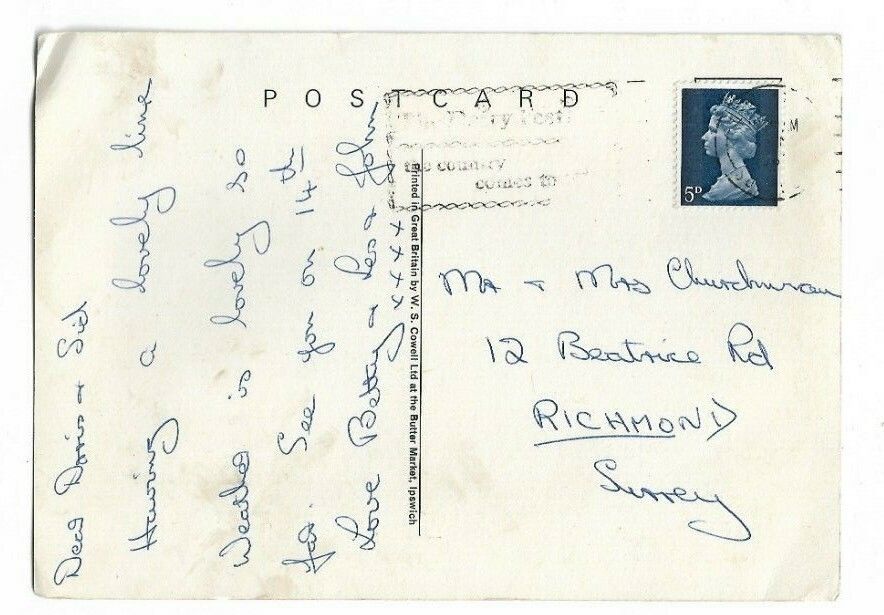 POSTCARD
Dear Doris & Sid
Having a lovely time
Weather is lovely so
far. See you on 14th
Love Betty & Les & John
x x x x x
Printed in Great Britain by W. S. Cowell Ltd at the Butter Market, Ipswich
the country
comes to
M
5D
Mr & Mrs Churchman
12 Beatrice Rd
RICHMOND
Surrey